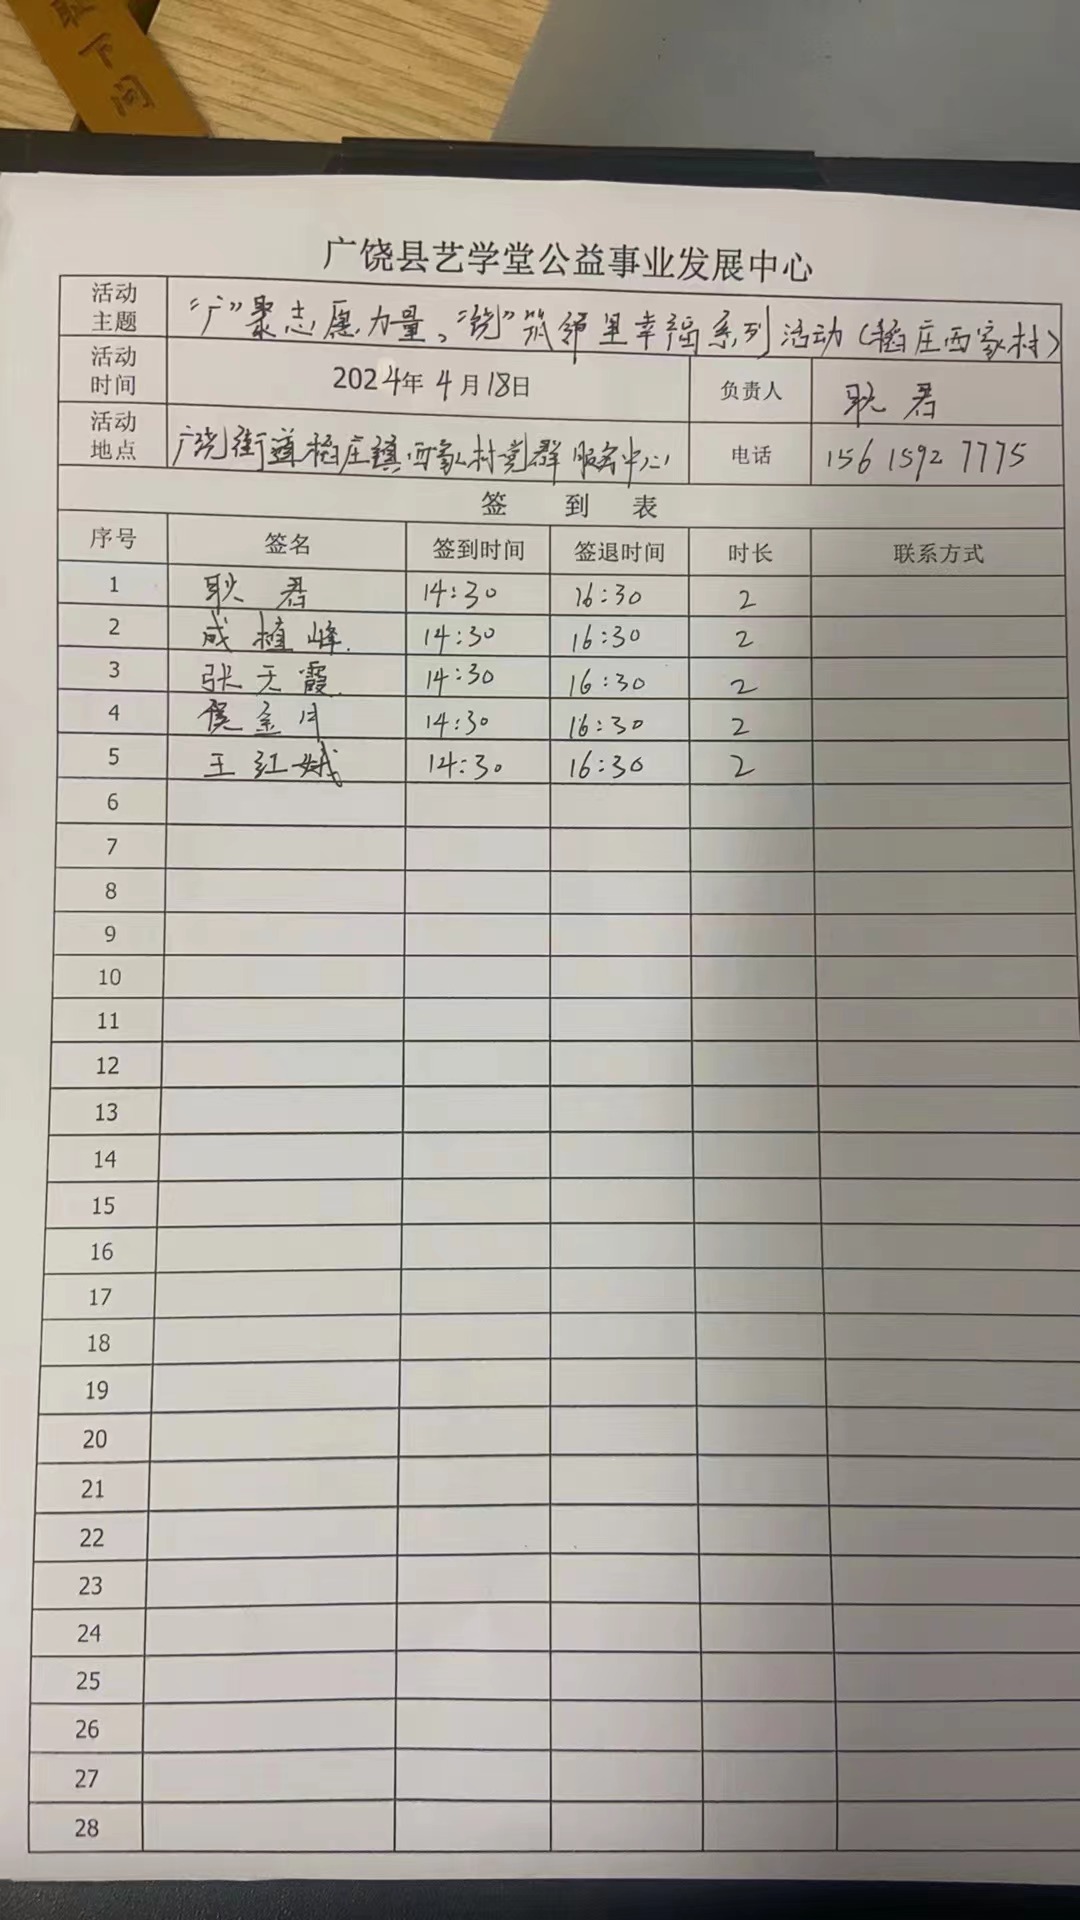 下问
广饶县艺学堂公益事业发展中心
活动主题 “广”聚志愿力量，“饶”筑邻里幸福系列活动（稻庄西家村）
活动时间 2024年4月18日 负责人 耿君
活动地点 广饶街道稻庄镇西家村党群服务中心 电话 156 1592 7775
签 到 表
序号 签名 签到时间 签退时间 时长 联系方式
1 耿君 14:30 16:30 2
2 成植峰 14:30 16:30 2
3 张天霞 14:30 16:30 2
4 侯金月 14:30 16:30 2
5 王红娥 14:30 16:30 2
6
7
8
9
10
11
12
13
14
15
16
17
18
19
20
21
22
23
24
25
26
27
28